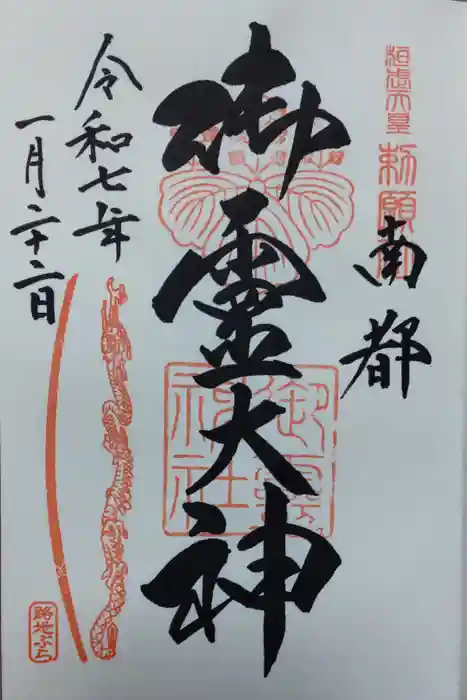 桓武天皇勅願所
南都
御靈大神
御霊神社
令和七年
一月二十二日
路地ぶら